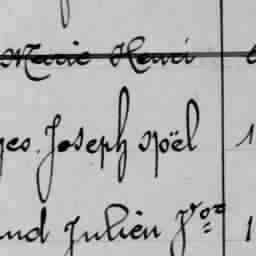 Marie Henri
ges Joseph Noël 1
and Julien Vor 1